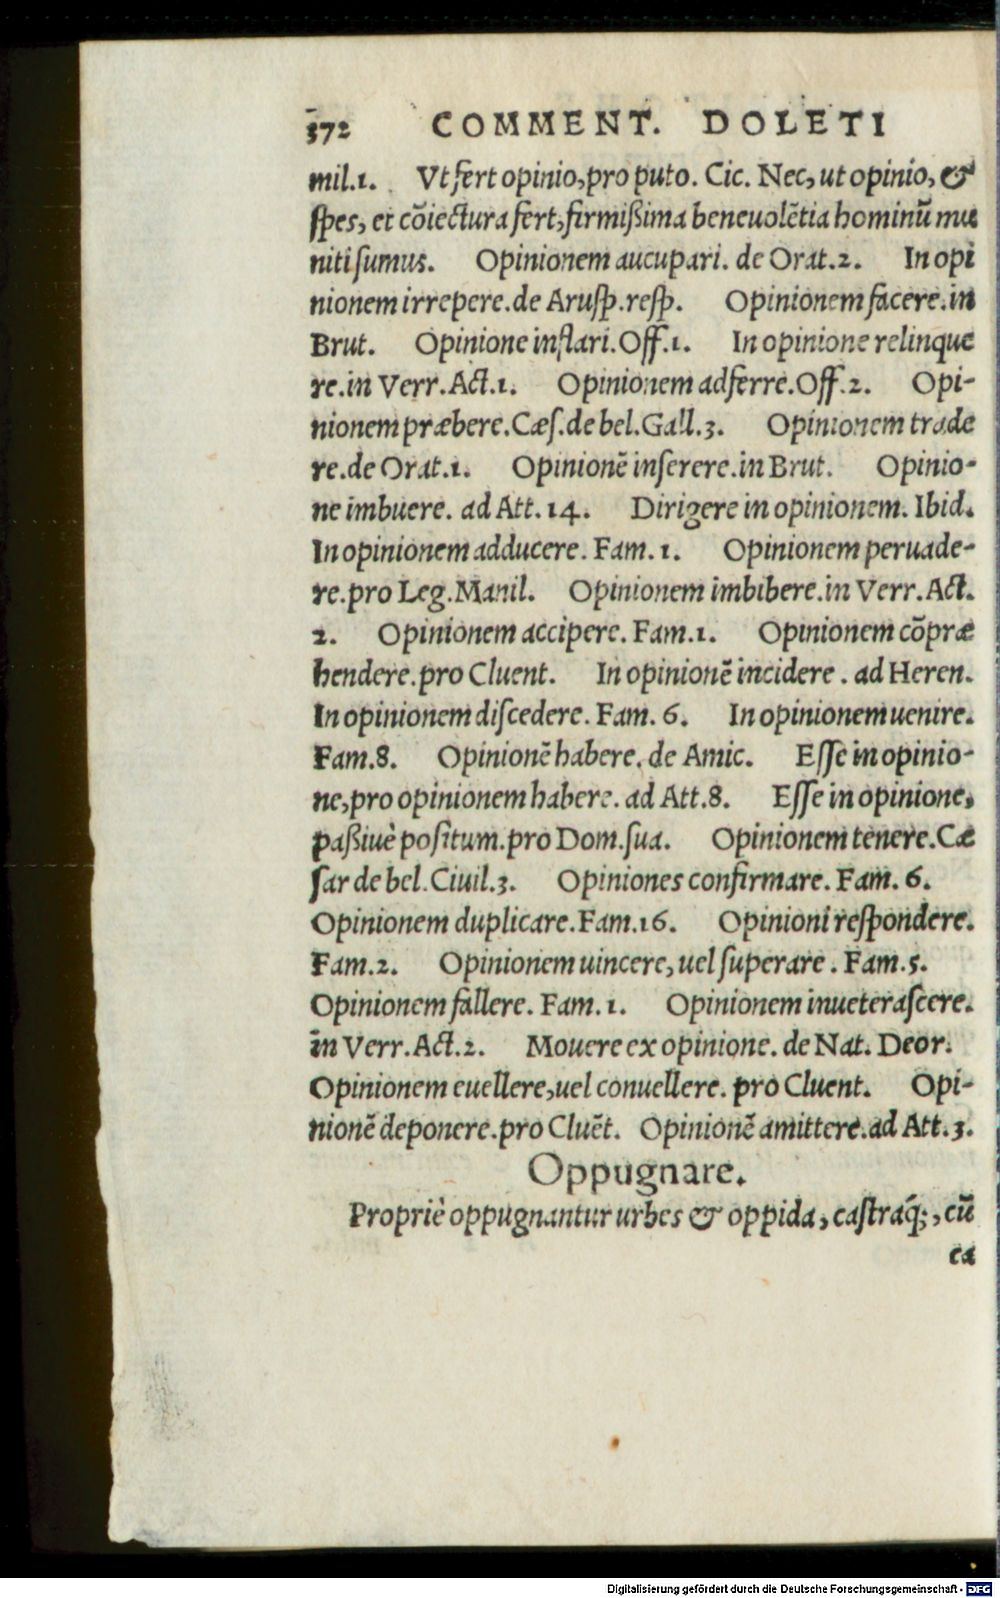 372 COMMENT. DOLETI
mil.1. Vt fert opinio, pro puto. Cic. Nec, ut opinio, &
ſpes, et cōiectura fert, firmißima beneuolētia hominū mu
niti ſumus. Opinionem aucupari. de Orat.2. In opi
nionem irrepere. de Aruſp. reſp. Opinionem facere. in
Brut. Opinione inflari. Off.1. In opinione relinque
re. in Verr. Act.1. Opinionem adferre. Off.2. Opi-
nionem præbere. Cæſ. de bel. Gall.3. Opinionem trade
re. de Orat.1. Opinionē inſerere. in Brut. Opinio-
ne imbuere. ad Att.14. Dirigere in opinionem. Ibid.
In opinionem adducere. Fam.1. Opinionem peruade-
re. pro Leg. Manil. Opinionem imbibere. in Verr. Act.
2. Opinionem accipere. Fam.1. Opinionem cōpræ
hendere. pro Cluent. In opinionē incidere. ad Heren.
In opinionem diſcedere. Fam. 6. In opinionem uenire.
Fam.8. Opinionē habere. de Amic. Eſſe in opinio-
ne, pro opinionem habere. ad Att.8. Eſſe in opinione,
paßiuè poſitum. pro Dom. ſua. Opinionem tenere. Cæ
ſar de bel. Ciuil.3. Opiniones confirmare. Fam. 6.
Opinionem duplicare. Fam.16. Opinioni reſpondere.
Fam.2. Opinionem uincere, uel ſuperare. Fam.5.
Opinionem fallere. Fam.1. Opinionem inueteraſcere.
in Verr. Act.2. Mouere ex opinione. de Nat. Deor.
Opinionem euellere, uel conuellere. pro Cluent. Opi-
nionē deponere. pro Cluēt. Opinionē amittere. ad Att.3.
Oppugnare.
Propriè oppugnantur urbes & oppida, caſtraq́;, cū
ea
Digitalisierung gefördert durch die Deutsche Forschungsgemeinschaft - DFG